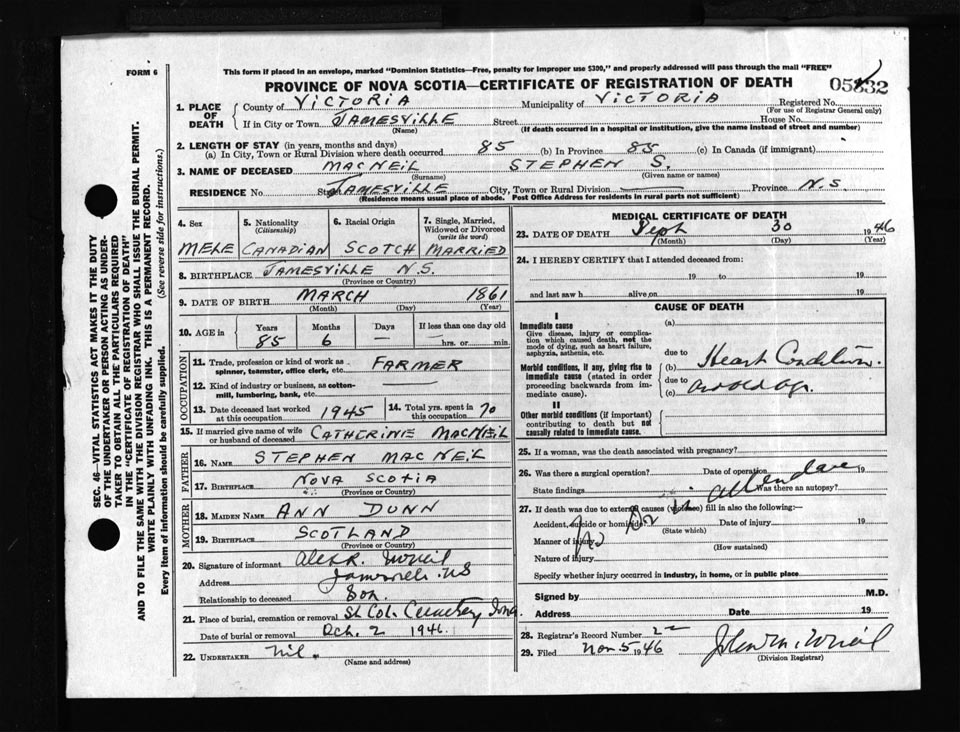 FORM 6
This form if placed in an envelope, marked "Dominion Statistics—Free, penalty for improper use $300," and properly addressed will pass through the mail "FREE"
PROVINCE OF NOVA SCOTIA—CERTIFICATE OF REGISTRATION OF DEATH
1. PLACE OF DEATH
County of VICTORIA Municipality of VICTORIA Registered No.
(For use of Registrar General only)
If in City or Town JAMESVILLE Street House No.
(Name) (If death occurred in a hospital or institution, give the name instead of street and number)
2. LENGTH OF STAY (in years, months and days)
(a) In City, Town or Rural Division where death occurred 85 (b) In Province 85 (c) In Canada (if immigrant)
3. NAME OF DECEASED MACNEIL STEPHEN S.
(Surname) (Given name or names)
RESIDENCE No Street JAMESVILLE City, Town or Rural Division Province N.S.
(Residence means usual place of abode. Post Office Address for residents in rural parts not sufficient)
SEC. 46—VITAL STATISTICS ACT MAKES IT THE DUTY
OF THE UNDERTAKER OR PERSON ACTING AS UNDER-
TAKER TO OBTAIN ALL THE PARTICULARS REQUIRED
IN THE "CERTIFICATE OF REGISTRATION OF DEATH"
AND TO FILE THE SAME WITH THE DIVISION REGISTRAR WHO SHALL ISSUE THE BURIAL PERMIT.
WRITE PLAINLY WITH UNFADING INK. THIS IS A PERMANENT RECORD.
Every item of information should be carefully supplied. (See reverse side for instructions.)
4. Sex
MELE
5. Nationality
(Citizenship)
CANADIAN
6. Racial Origin
SCOTCH
7. Single, Married,
Widowed or Divorced
(write the word)
MARRIED
8. BIRTHPLACE JAMESVILLE N.S.
(Province or Country)
9. DATE OF BIRTH MARCH 1861
(Month) (Day) (Year)
10. AGE in Years Months Days If less than one day old
85 6 — hrs. or min.
OCCUPATION
11. Trade, profession or kind of work as
spinner, teamster, office clerk, etc. FARMER
12. Kind of industry or business, as cotton-
mill, lumbering, bank, etc.
13. Date deceased last worked
at this occupation 1945
14. Total yrs. spent in
this occupation 70
15. If married give name of wife
or husband of deceased CATHERINE MACNEIL
FATHER
16. NAME STEPHEN MACNEIL
17. BIRTHPLACE NOVA SCOTIA
(Province or Country)
MOTHER
18. MAIDEN NAME ANN DUNN
19. BIRTHPLACE SCOTLAND
(Province or Country)
20. Signature of informant
Address N.S
Relationship to deceased Son.
21. Place of burial, cremation or removal St Col. Cemetery, Iona
Date of burial or removal Oct. 2 1946.
22. UNDERTAKER nil.
(Name and address)
MEDICAL CERTIFICATE OF DEATH
23. DATE OF DEATH Sept 30 1946
(Month) (Day) (Year)
24. I HEREBY CERTIFY that I attended deceased from:
19 to 19
and last saw h alive on 19
CAUSE OF DEATH
I
Immediate cause
Give disease, injury or complica-
tion which caused death, not the
mode of dying, such as heart failure,
asphyxia, asthenia, etc.
Morbid conditions, if any, giving rise to
immediate cause (stated in order
proceeding backwards from im-
mediate cause).
II
Other morbid conditions (if important)
contributing to death but not
causally related to immediate cause.
(a)
due to
(b) Heart Condition.
due to
(c) and old age.
25. If a woman, was the death associated with pregnancy?
26. Was there a surgical operation? Date of operation 19
State findings Was there an autopsy?
No Dr in attendance
27. If death was due to external causes (violence) fill in also the following:—
Accident, suicide or homicide Date of injury 19
(State which)
Manner of injury
(How sustained)
Nature of injury
Specify whether injury occurred in industry, in home, or in public place
Signed by M.D.
Address Date 19
28. Registrar's Record Number 22
29. Filed Nov. 5 1946
(Division Registrar)